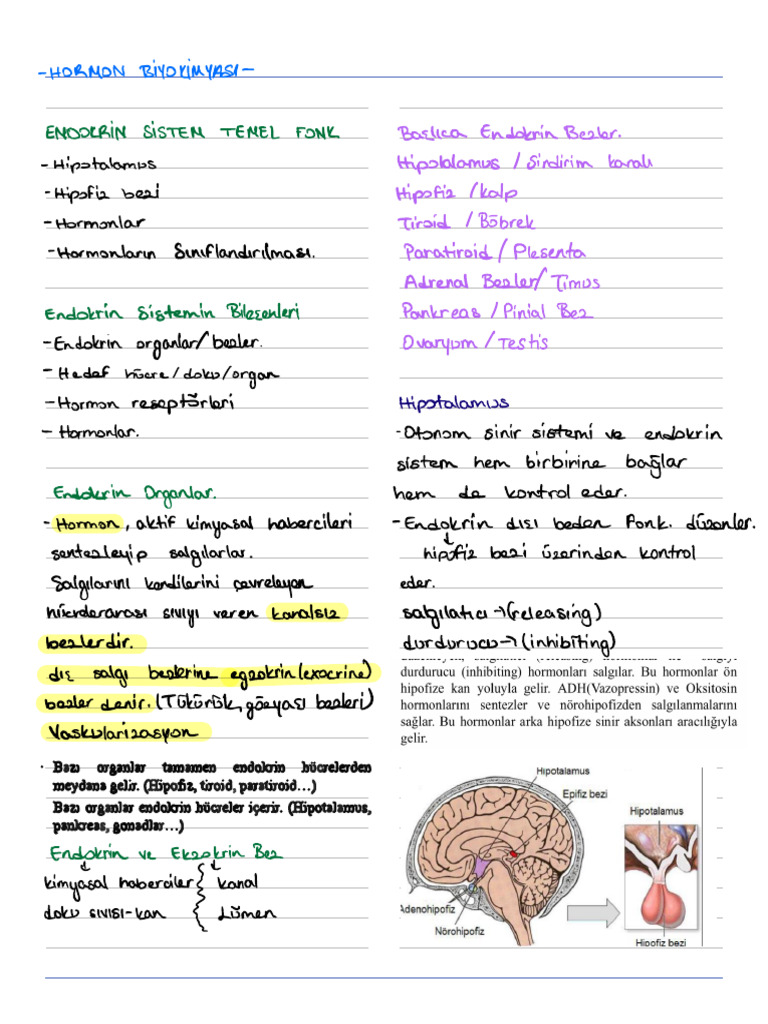 -HORMON BİYOKİMYASI-
ENDOKRİN SİSTEM TEMEL FONK
-Hipotalamus
-Hipofiz bezi
-Hormonlar
-Hormonların Sınıflandırılması.
Endokrin Sistemin Bileşenleri
-Endokrin organlar/bezler.
- Hedef hücre/doku/organ
-Hormon reseptörleri
- Hormonlar.
Endokrin Organlar.
- Hormon, aktif kimyasal habercileri
sentezleyip salgılarlar.
Salgılarını kendilerini çevreleyen
hücrelerarası sıvıyı veren kanalsız
bezlerdir.
dış salgı bezlerine egzokrin(exocrine)
bezler denir. (Tükürük, gözyaşı bezleri)
Vaskularizasyon
· Bazı organlar tamamen endokrin hücrelerden
meydana gelir. (Hipofiz, tiroid, paratiroid…)
Bazı organlar endokrin hücreler içerir. (Hipotalamus,
pankreas, gonadlar…)
Endokrin ve Ekzokrin Bez
kimyasal haberciler kanal
doku sıvısı-kan Lümen
Başlıca Endokrin Bezler.
Hipotalamus / Sindirim kanalı
Hipofiz /kalp
Tiroid / Böbrek
Paratiroid / Plesenta
Adrenal Bezler/ Timus
Pankreas / Pinial Bez
Ovaryum / Testis
Hipotalamus
-Otonom sinir sistemi ve endokrin
sistem hem birbirine bağlar
hem de kontrol eder.
-Endokrin dışı beden fonk. düzenler.
↓
hipofiz bezi üzerinden kontrol
eder.
salgılatıcı→(releasing)
durdurucu→(inhibiting)
durdurucu (inhibiting) hormonları salgılar. Bu hormonlar ön
hipofize kan yoluyla gelir. ADH(Vazopressin) ve Oksitosin
hormonlarını sentezler ve nörohipofizden salgılanmalarını
sağlar. Bu hormonlar arka hipofize sinir aksonları aracılığıyla
gelir.
Hipotalamus
Epifiz bezi
Hipotalamus
Adenohipofiz
Nörohipofiz
Hipofiz bezi